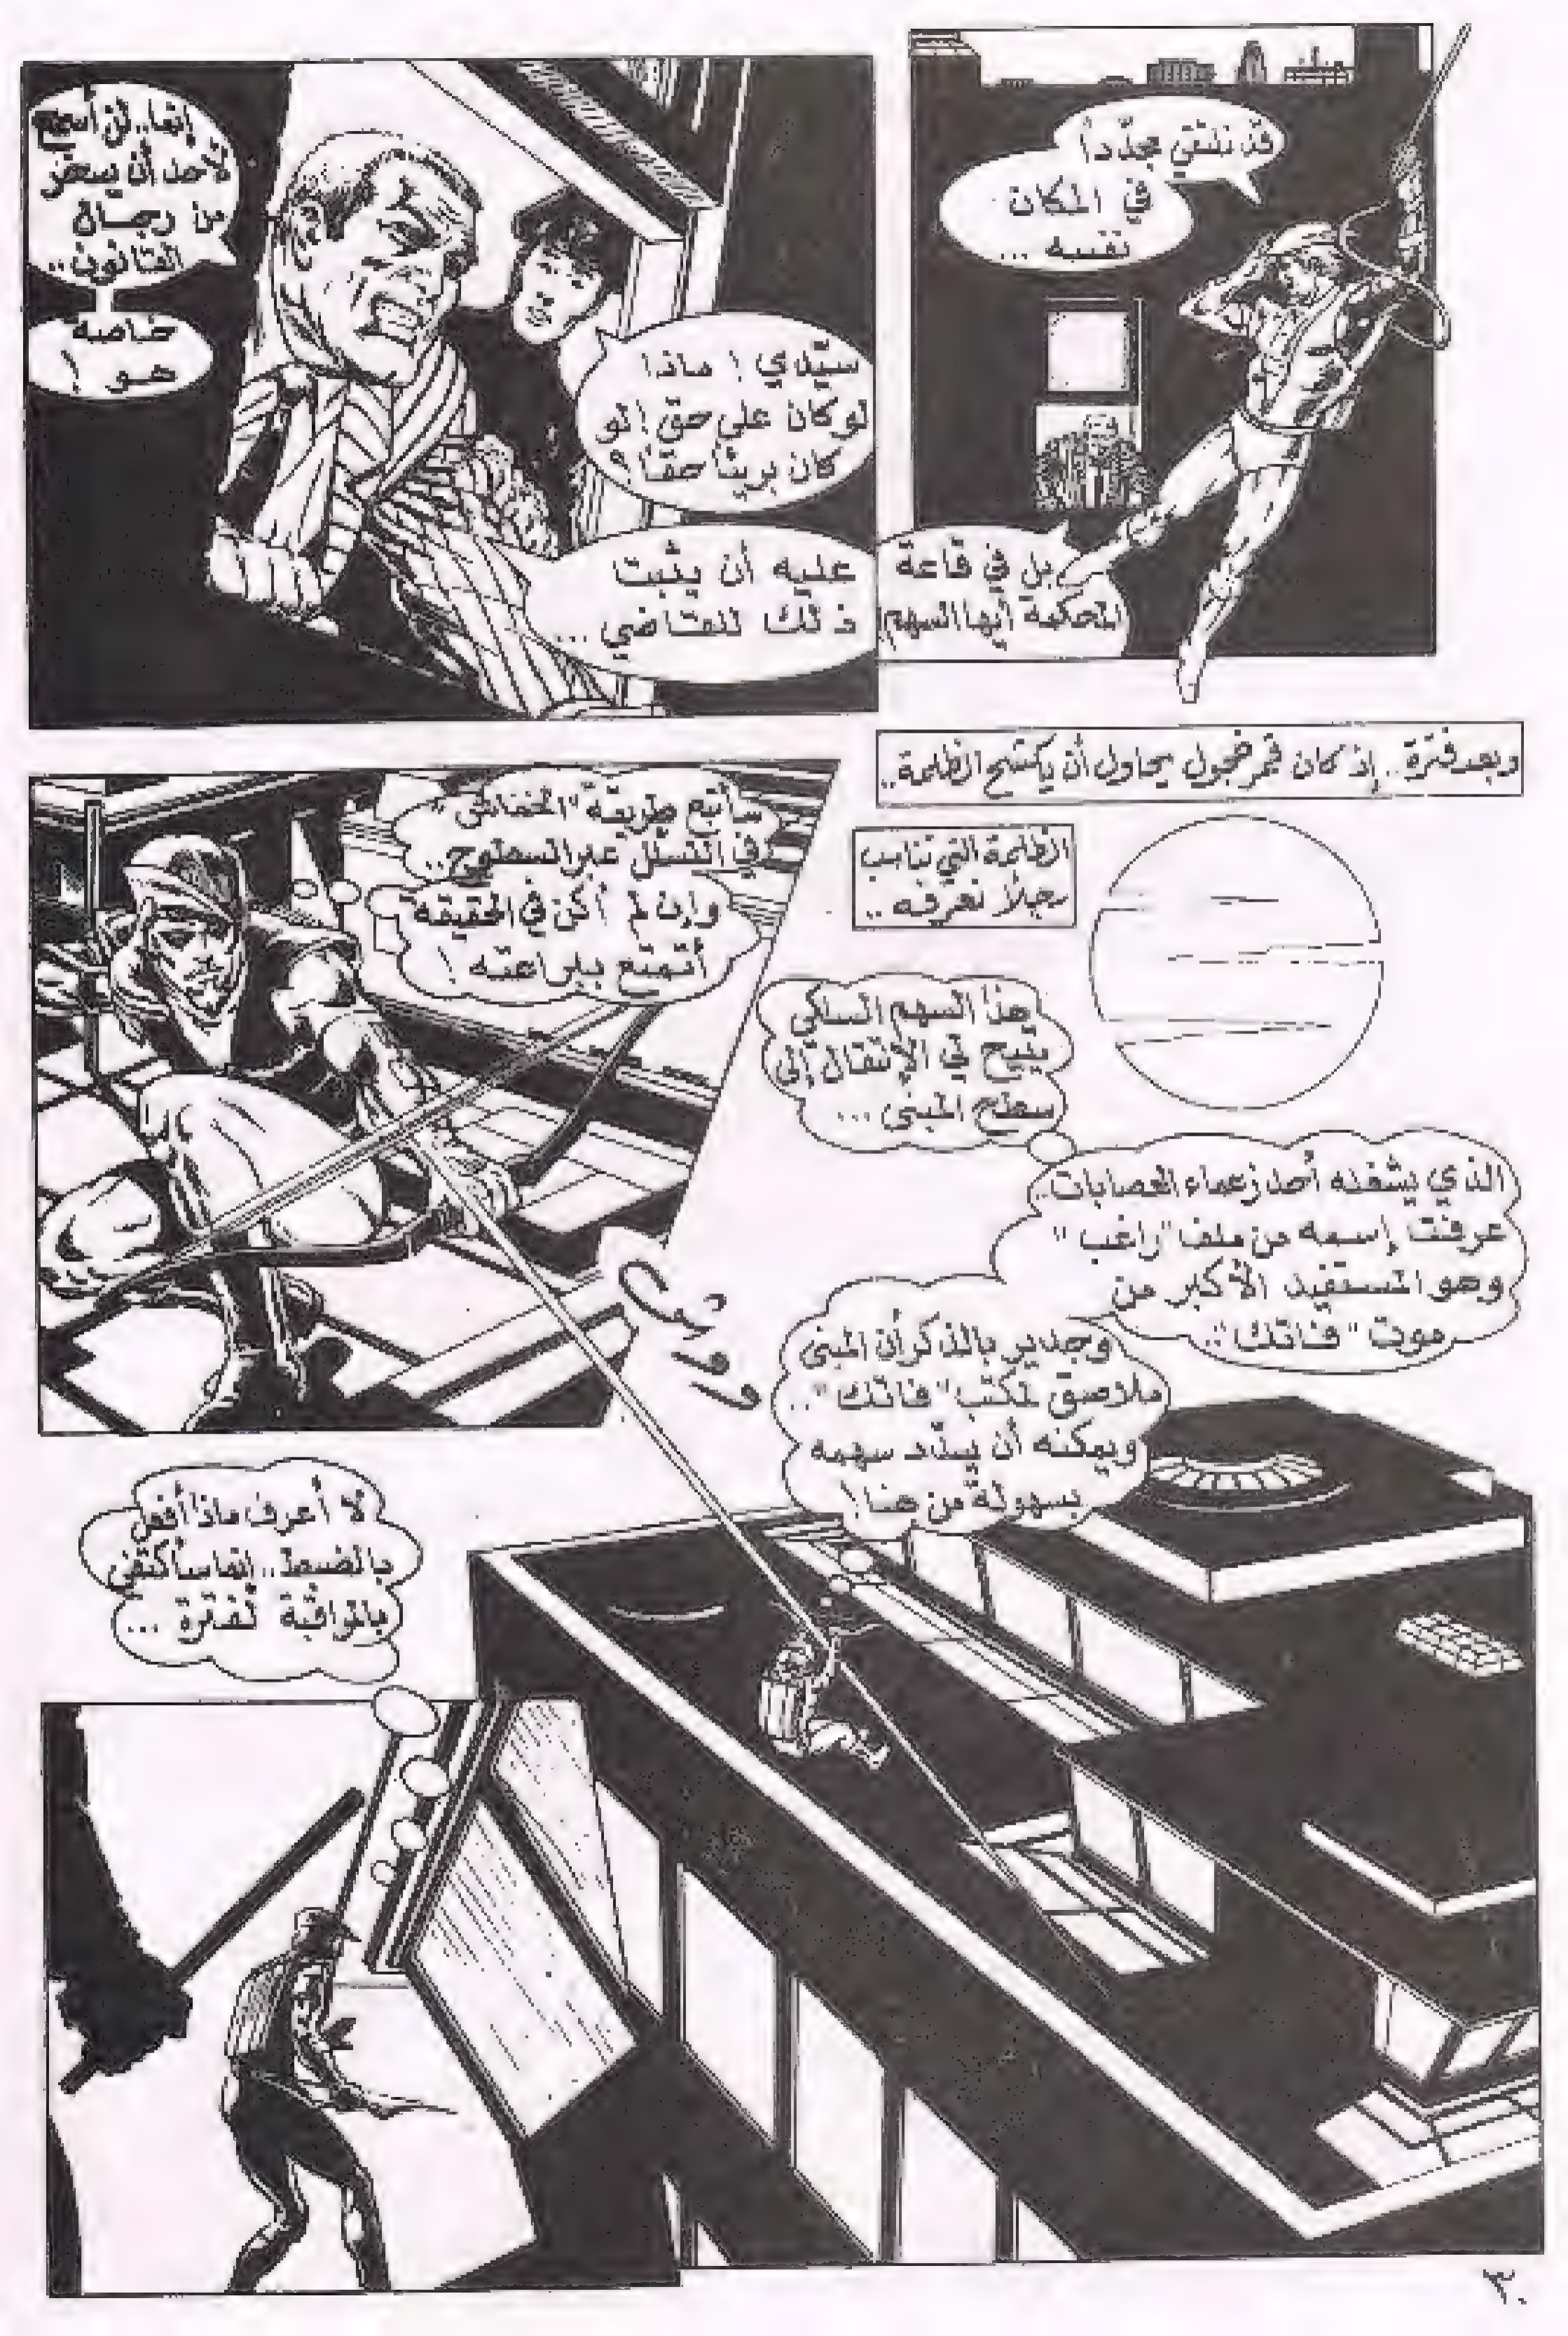 قد نلتقي مجدّداً
في المكان
نفسه ...
بل في قاعة
المحكمة أيها السهم!
إنما.. لن أسمح
لأحد أن يسخر
من رجال
القانون..
خاصة
هو !
سيّدي ! ماذا
لو كان على حق ! لو
كان بريئاً حقاً ؟
عليه أن يثبت
ذلك للقاضي ...
وبعد فترة.. إذ كان قمر خجول يحاول أن يكتسح الظلمة..
الظلمة التي تناسب
رجلاً نعرفه ..
سأتبع طريقة "الخفاش"
في التسلل عبر السطوح..
وإن لم أكن في الحقيقة
أتمتع ببراعته !
هذا السهم السلكي
يتيح لي الإنتقال إلى
سطح المبنى ...
الذي يشغله أحد زعماء العصابات..
عرفت إسمه من ملف "راغب"
وهو المستفيد الأكبر من
موت "فاتك"..
وجدير بالذكر أن المبنى
ملاصق لمكتب "فاتك"..
ويمكنه أن يسدّد سهمه
بسهولة من هنا !
لا أعرف ماذا أفعل
بالضبط.. إنما سأكتفي
بالمراقبة لفترة ...
٣٠